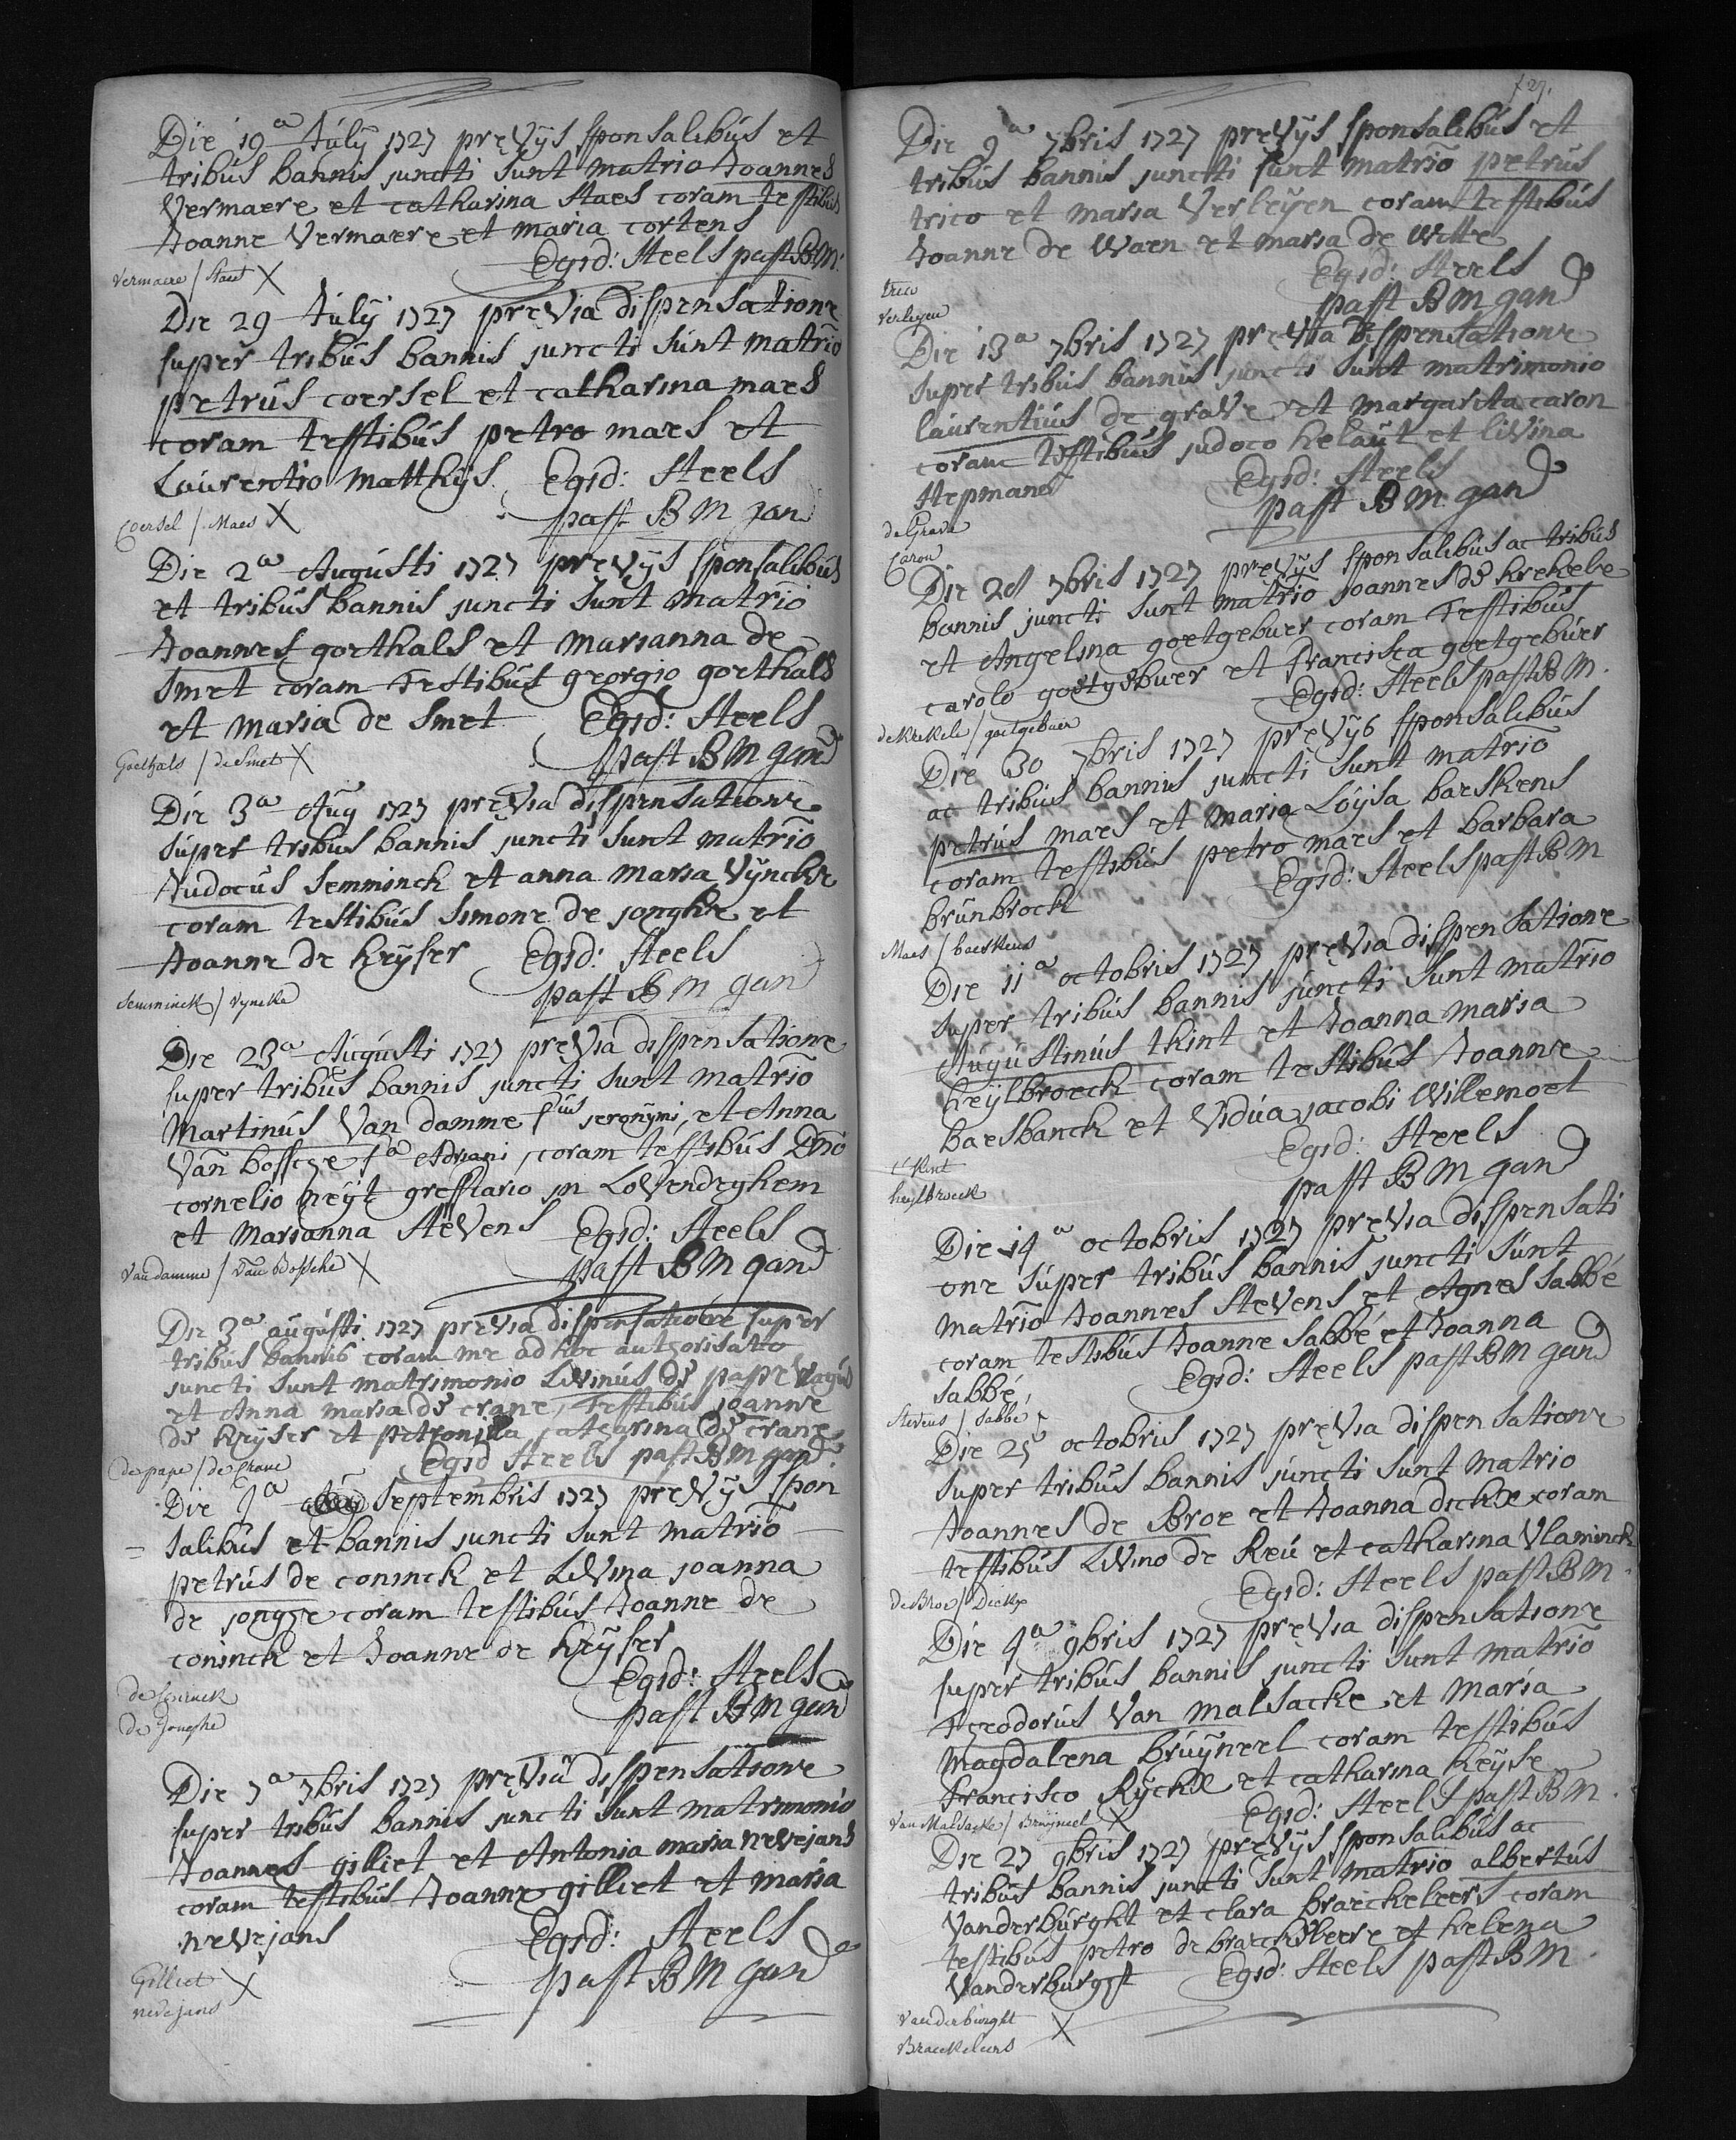 Die 19a July 1727 prevys sponsalibus et
tribus bannis juncti sunt matrio Joannes
Vermaere et catharina Staes coram testibus
Joanne Vermaere et maria cortens
Egid: Steels past BM:
Vermaere / Staes X
Die 29 July 1727 previa dispensatione
super tribus bannis juncti sunt matrio
petrus coersel et catharina maes
coram testibus petro maes et
Laurentio Matthys. Egid: Steels
past B M gand
Coersel / Maes X
Die 2a Augusti 1727 prevys sponsalibus
et tribus bannis juncti sunt matrio
Joannes goethals et marianna de
Smet coram Testibus georgio goethals
et maria de Smet Egid: Steels
past BM gand
Goethals / de Smet X
Die 3a Aug 1727 previa dispensatione
super tribus bannis juncti sunt matrio
Judocus Semminck et anna maria Vyncke
coram testibus Simone de jonghe et
Joanne de keyser Egid: Steels
past BM gand
Semminck / Vyncke
Die 23a Augusti 1727 previa dispensatione
super tribus bannis juncti sunt matrio
Martinus Van damme fius jeronymi, et Anna
Van bossche fa Adriani, coram testibus Dno
cornelio neyt greffiario in Lovendeghem
et marianna Stevens Egid: Steels
past BM gand
Van damme / Van Bossche X
Die 3a augusti 1727 previa dispensatione super
tribus bannis coram me ad hoc authorisato
juncti sunt matrimonio Livinus de pape
et Anna maria de crane, Testibus joanne
de keyser et petronilla catharina de crane
Egid Steels past BM gand
de pape / de Crane
Die Septembris 1727 prevys spon
= salibus et bannis juncti sunt matrio
petrus de coninck et Livina joanna
de jonghe coram testibus Joanne de
coninck et Joanne de keyser
Egid: Steels
past BM gand
de Coninck
de Jonghe
Die 7a 7bris 1727 previa dispensatione
super tribus bannis juncti sunt matrimonio
Joannes gilliet et Antonia maria nevejans
coram testibus Joanne gilliet et maria
nevejans Egid: Steels
past BM gand
Gilliet
nevejans X
Die 9a 7bris 1727 prevys sponsalibus et
tribus bannis juncti sunt matrio petrus
trico et maria Verleyen coram testibus
Joanne de Waen et maria de Witte
Egid: Steels
past BM gand
trico
Verleyen
Die 13a 7bris 1727 previa dispensatione
super tribus bannis juncti sunt matrimonio
laurentius de grave et margarita caron
coram testibus judoco helaut et livina
Stepmans Egid: Steels
past BM gand
de Grave
Caron
Die 28 7bris 1727 prevys sponsalibus ac tribus
bannis juncti sunt matrio joannes de krekele
et Angelina goetgebuer coram Testibus
carolo goetgebuer et francisca goetgebuer
Egid: Steels past BM.
de Krekele / goetgebuer
Die 30 7bris 1727 prevys sponsalibus
ac tribus bannis juncti sunt matrio
petrus maes et maria Loysa baeskens
coram testibus petro maes et barbara
brunbrock Egid: Steels past BM
Maes / baeskens
Die 11a octobris 1727 previa dispensatione
super tribus bannis juncti sunt matrio
Augustinus thint et Joanna maria
heylbroeck coram testibus Joanne
baesbanck et Vidua jacobi Willemoet
Egid: Steels
past BM gand
t'Kint
heylbroeck
Die 14a octobris 1727 previa dispensati
one super tribus bannis juncti sunt
matrio Joannes Stevens et Agnes Sabbé
coram testibus Joanne Sabbé et Joanna
Sabbé, Egid: Steels past BM gand
Stevens / Sabbé
Die 25 octobris 1727 previa dispensatione
super tribus bannis juncti sunt matrio
Joannes de Broe et Joanna dickx coram
testibus Livino de Reu et catharina Vlaminck
Egid: Steels past BM.
de Broe / Dickx
Die 4a 9bris 1727 previa dispensatione
super tribus bannis juncti sunt matrio
Theodorus Van Malsacke et Maria
Magdalena bruyneel coram testibus
francisco Ryckx et catharina keyse
Egid: Steels past BM.
Van Malsacke / Bruyneel X
Die 27 9bris 1727 prevys sponsalibus ac
tribus bannis juncti sunt matrio albertus
Vanderburght et clara braeckeleers coram
testibus petro de braeckeleere et helena
Vanderburght Egid: Steels past BM.
Vanderburght
Braeckeleers X